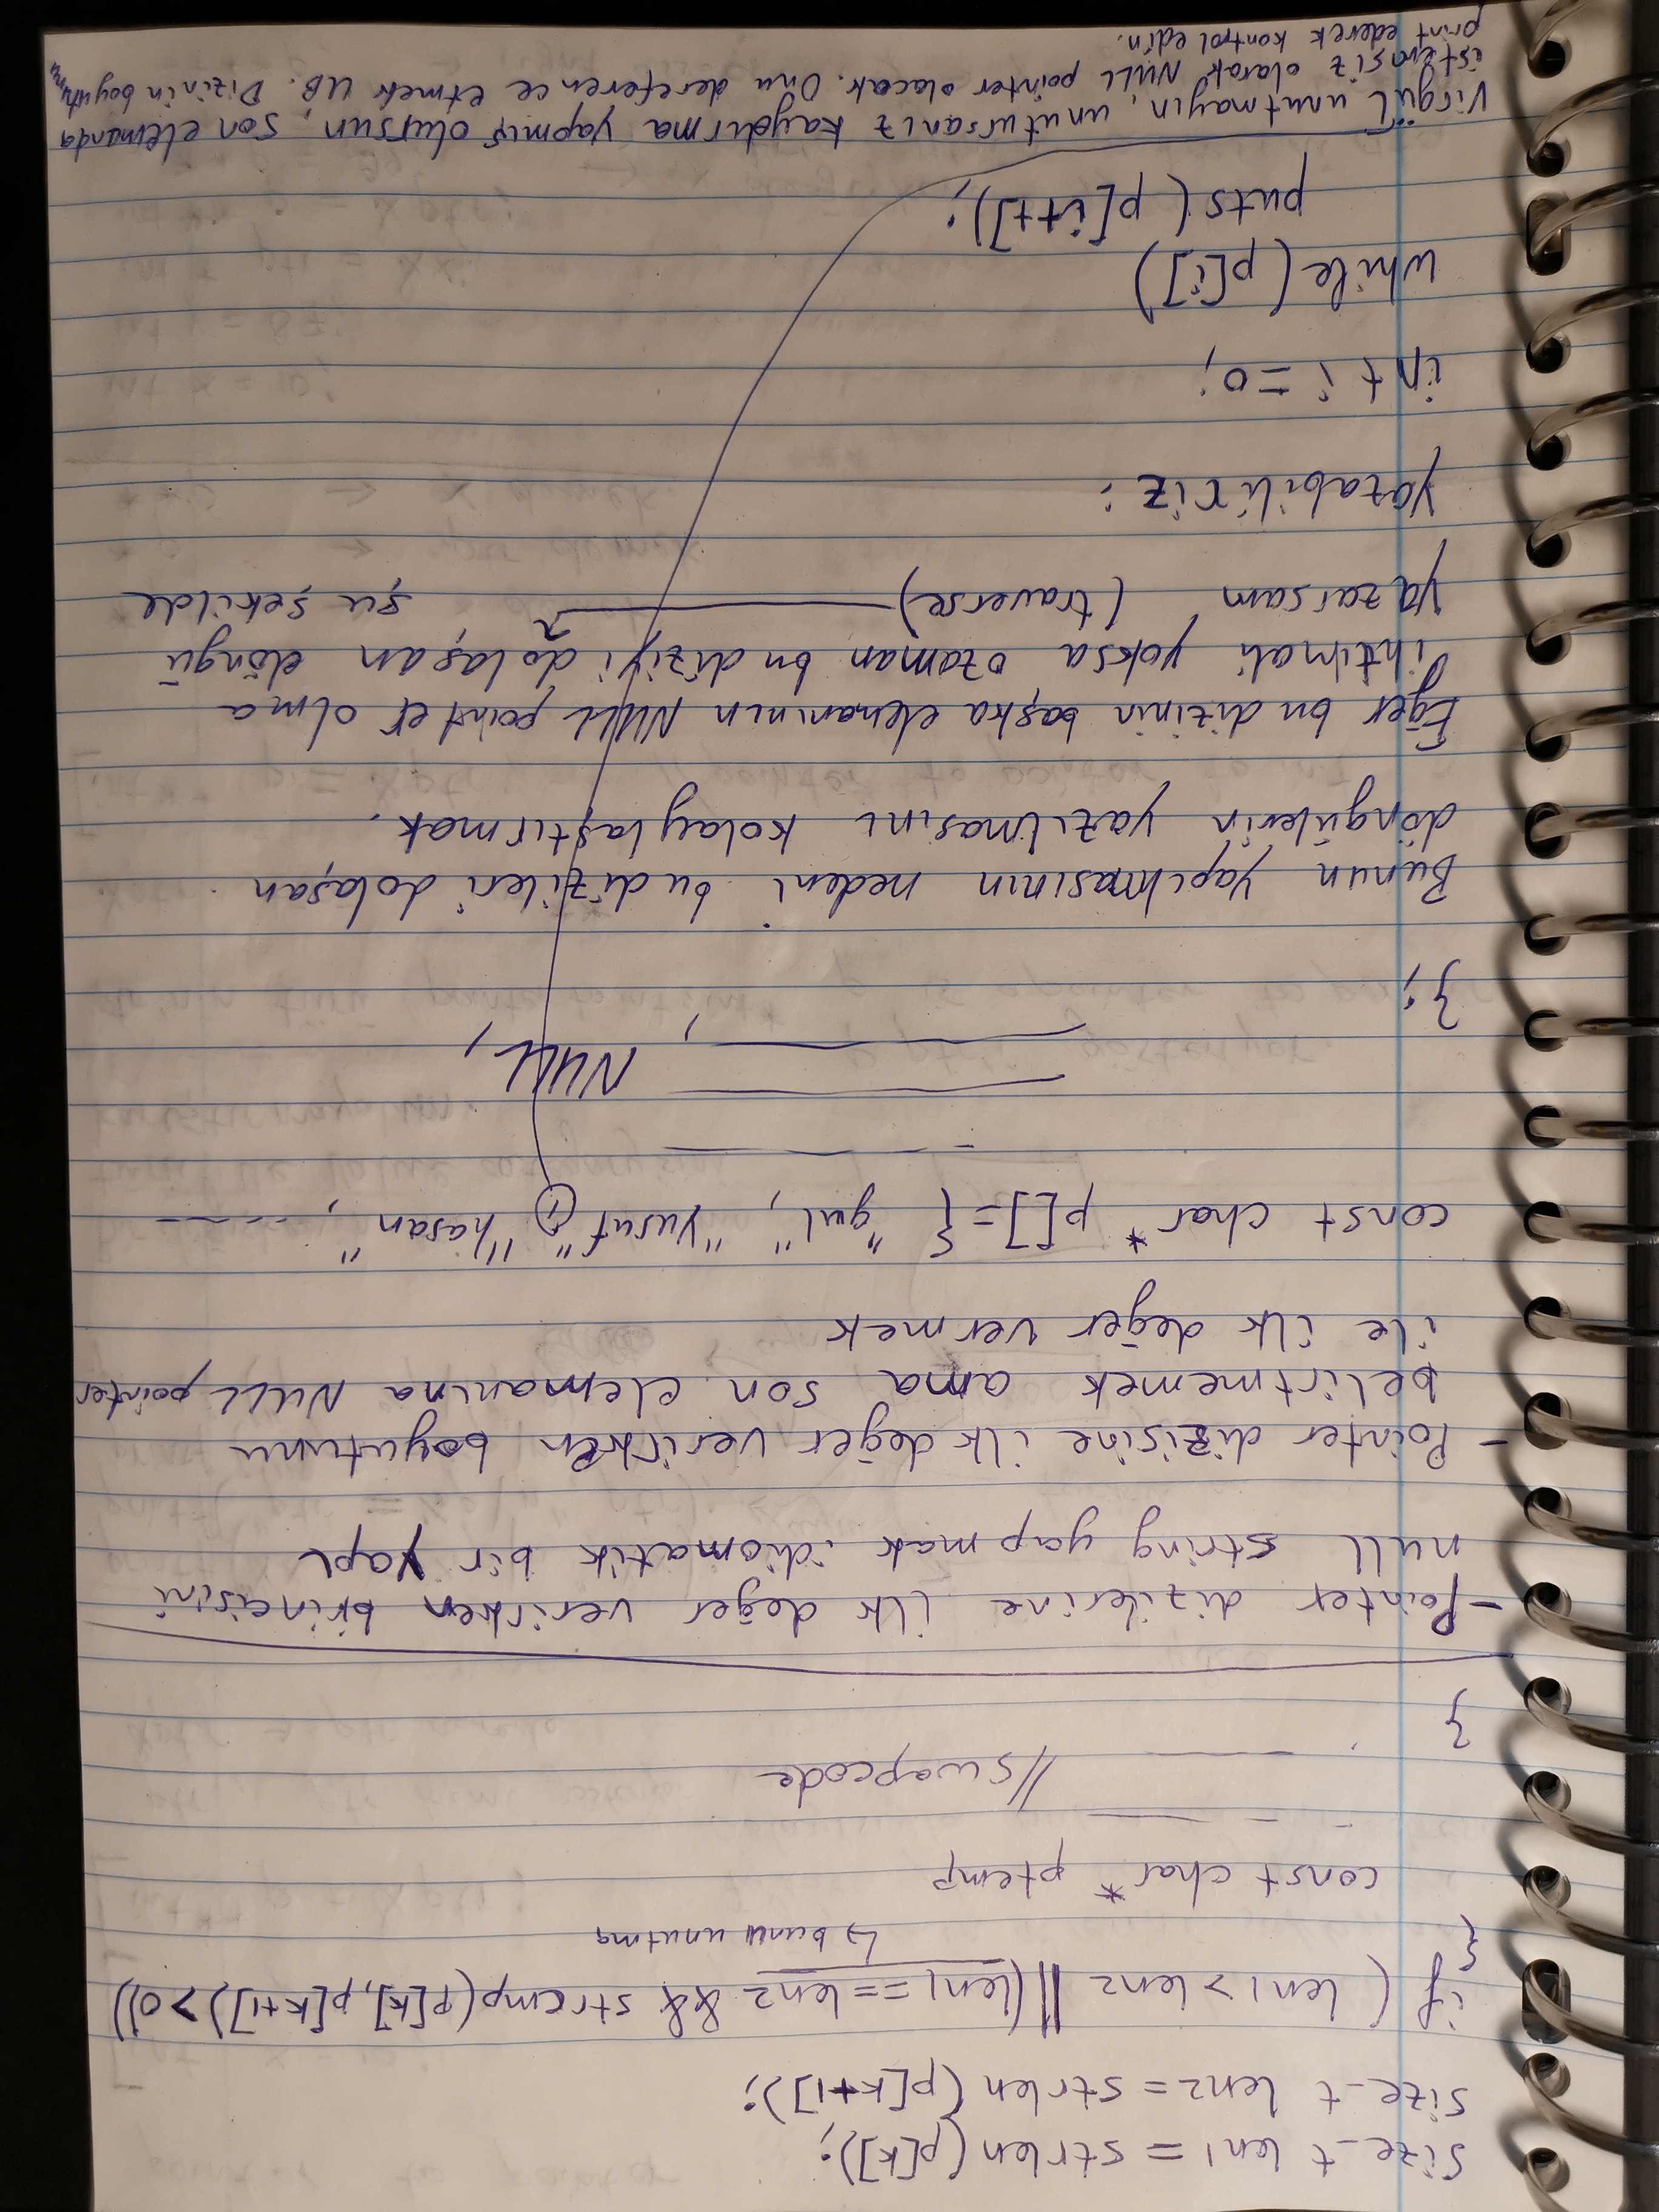 size_t len1 = strlen(p[k]);
size_t len2 = strlen(p[k+1]);
if ( len1 > len2 || (len1 == len2 && strcmp(p[k], p[k+1]) > 0))
{
↳ bunu unutma
const char* ptemp
//swapcode
}
- Pointer dizilerine ilk değer verirken birincisini
null string yapmak idiomatik bir yapı
- Pointer dizisine ilk değer verirken boyutunu
belirtmemek ama son elemanına NULL pointer
ile ilk değer vermek
const char* p[] = { "gul", "Yusuf", "hasan", -----
, NULL,
};
Bunun yapılmasının nedeni bu dizileri dolaşan
döngülerin yazılmasını kolaylaştırmak.
Eğer bu dizinin başka elemanının NULL pointer olma
ihtimali yoksa ozaman bu diziyi dolaşan döngü
yazarsam (traverse) şu şekilde
yazabiliriz:
int i = 0;
while(p[i])
puts( p[i++]);
Virgül unutmayın, unutursanız kaydırma yapmış olursun, son elemanda
istemsiz olarak NULL pointer olacak. Onu dereference etmek UB. Dizinin boyutunu
print ederek kontrol edin.